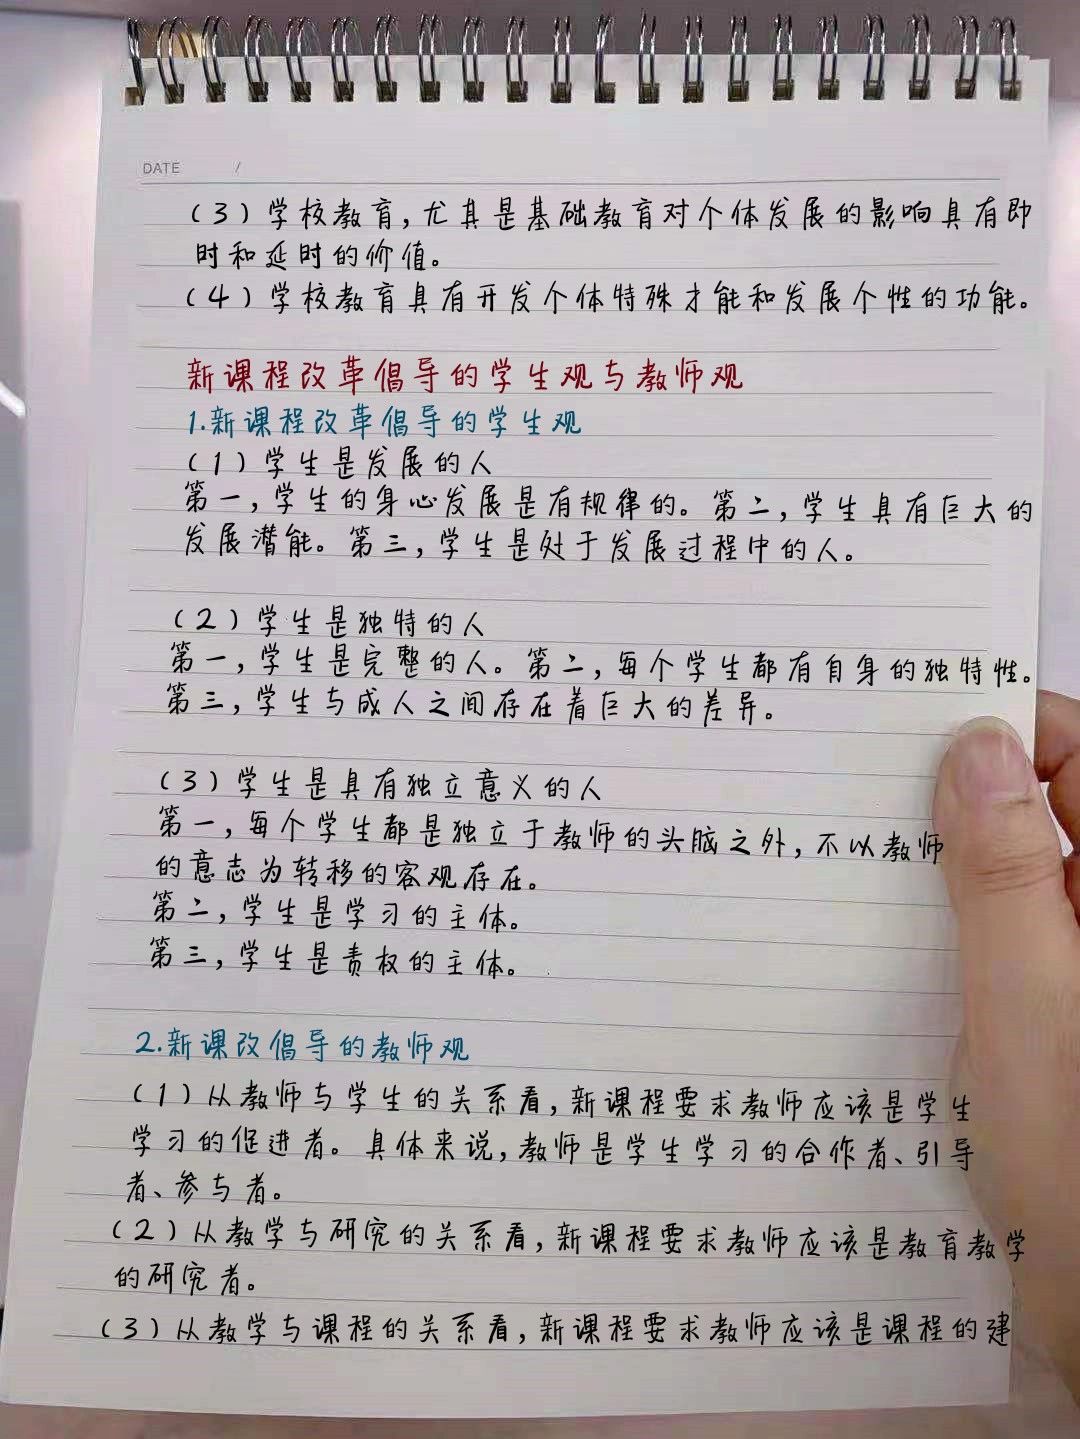 DATE /
(3)学校教育,尤其是基础教育对个体发展的影响具有即
时和延时的价值。
(4)学校教育具有开发个体特殊才能和发展个性的功能。
新课程改革倡导的学生观与教师观
1.新课程改革倡导的学生观
(1)学生是发展的人
第一,学生的身心发展是有规律的。第二,学生具有巨大的
发展潜能。第三,学生是处于发展过程中的人。
(2)学生是独特的人
第一,学生是完整的人。第二,每个学生都有自身的独特性。
第三,学生与成人之间存在着巨大的差异。
(3)学生是具有独立意义的人
第一,每个学生都是独立于教师的头脑之外,不以教师
的意志为转移的客观存在。
第二,学生是学习的主体。
第三,学生是责权的主体。
2.新课改倡导的教师观
(1)从教师与学生的关系看,新课程要求教师应该是学生
学习的促进者。具体来说,教师是学生学习的合作者、引导
者、参与者。
(2)从教学与研究的关系看,新课程要求教师应该是教育教学
的研究者。
(3)从教学与课程的关系看,新课程要求教师应该是课程的建